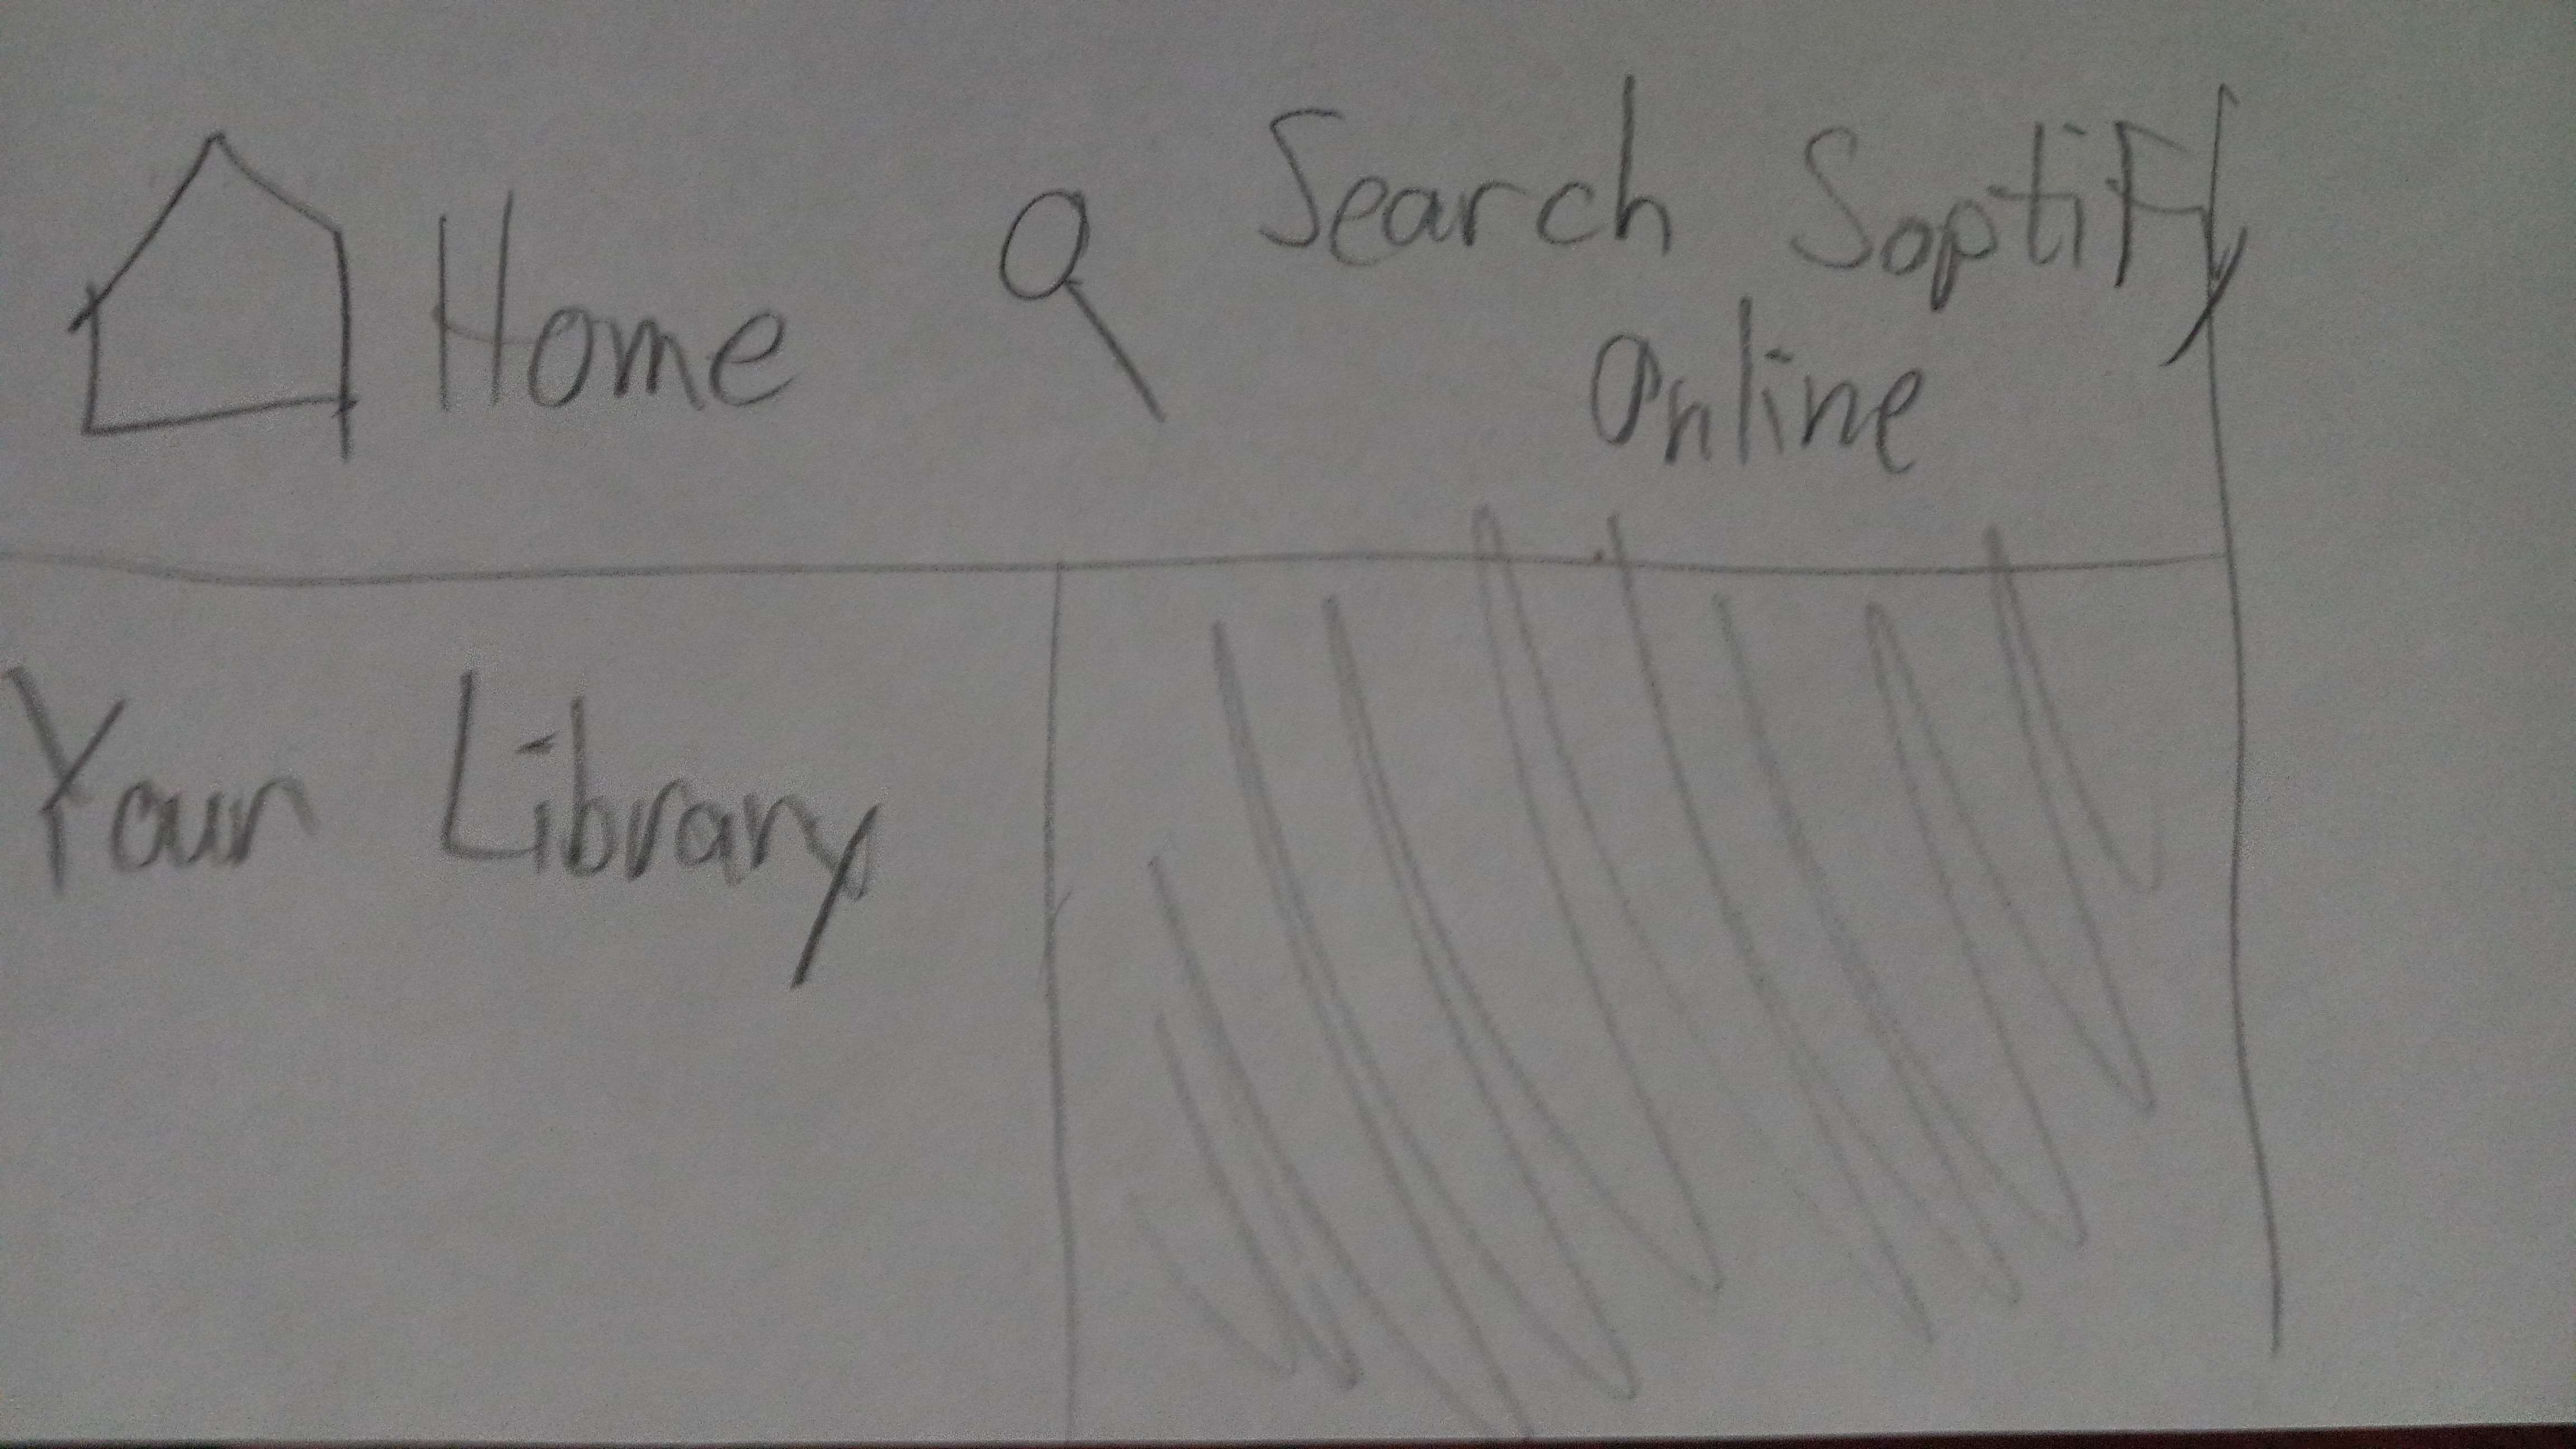 Home
Search Soptify
Online
Your Library